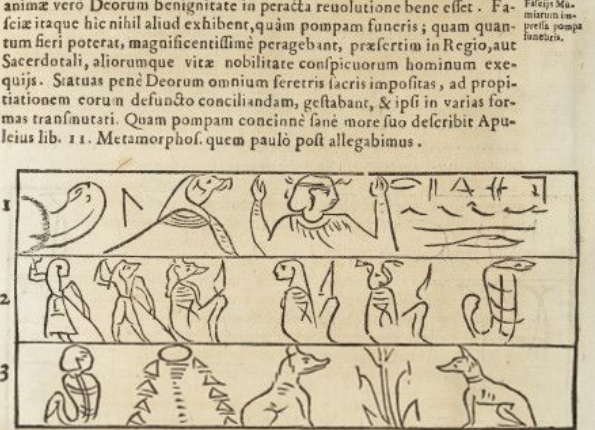 animæ verò Deorum benignitate in peracta reuolutione bene esset. Fa-
sciæ itaque hic nihil aliud exhibent, quàm pompam funeris; quam quan-
tum fieri poterat, magnificentissimè peragebant, præsertim in Regio, aut
Sacerdotali, aliorumque vitæ nobilitate conspicuorum hominum exe-
quijs. Statuas penè Deorum omnium feretris sacris impositas, ad propi-
tiationem eorum defuncto conciliandam, gestabant, & ipsi in varias for-
mas transmutati. Quam pompam concinnè sanè more suo describit Apu-
leius lib. 11. Metamorphos. quem paulò post allegabimus.
Fascijs Mu-
miarum im-
pressa pompa
funebris.
1
2
3